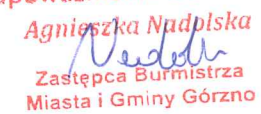 Agnieszka Nadolska
Zastępca Burmistrza
Miasta i Gminy Górzno